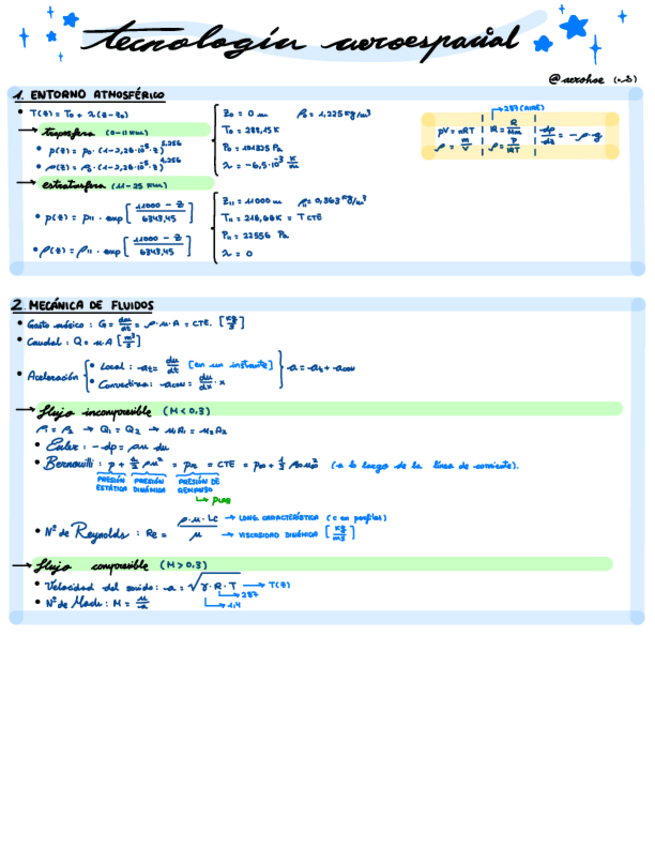 tecnología aeroespacial
1. ENTORNO ATMOSFÉRICO
• T(z) = T₀ + λ(z - z₀)
→ troposfera (0-11 km)
• p(z) = p₀ · (1 - 2,26·10⁻⁵ · z)^5,256
• ρ(z) = ρ₀ · (1 - 2,26·10⁻⁵ · z)^4,256
Z₀ = 0 m ρ₀ = 1,225 kg/m³
T₀ = 288,15 K
P₀ = 101325 Pa
λ = -6,5·10⁻³ K/m
→ 287 (AIRE)
pV = nRT | R = R/Mm | dp/dz = -ρ·g
ρ = m/V | ρ = P/RT
→ estratosfera (11-25 km)
• p(z) = p₁₁ · exp [ (11000 - z) / 6343,45 ]
• ρ(z) = ρ₁₁ · exp [ (11000 - z) / 6343,45 ]
Z₁₁ = 11000 m ρ₁₁ = 0,363 kg/m³
T₁₁ = 216,66 K = T CTE
P₁₁ = 22556 Pa
λ = 0
2. MECÁNICA DE FLUIDOS
• Gasto másico : G = dm/dt = ρ·u·A = CTE. [kg/s]
• Caudal : Q = u·A [m³/s]
• Aceleración { • Local : a_t = du/dt [en un instante] } a = a_t + a_conv
• Convectiva : a_conv = du/dx · x
→ flujo incompresible (M < 0,3)
ρ₁ = ρ₂ → Q₁ = Q₂ → u₁A₁ = u₂A₂
• Euler : -dp = ρu du
• Bernouilli : p + ½ρu² = p_R = CTE = p∞ + ½ρ∞u∞² (a lo largo de la línea de corriente).
PRESIÓN ESTÁTICA PRESIÓN DINÁMICA PRESIÓN DE REMANSO
• Nº de Reynolds : Re = ρ·u·Lc / μ → LONG. CARACTERÍSTICA (c en perfiles)
→ VISCOSIDAD DINÁMICA [kg/ms]
→ flujo compresible (M > 0,3)
• Velocidad del sonido : a = √γ·R·T → T(z)
→ 287
• Nº de Mach : M = u/a → 1,4